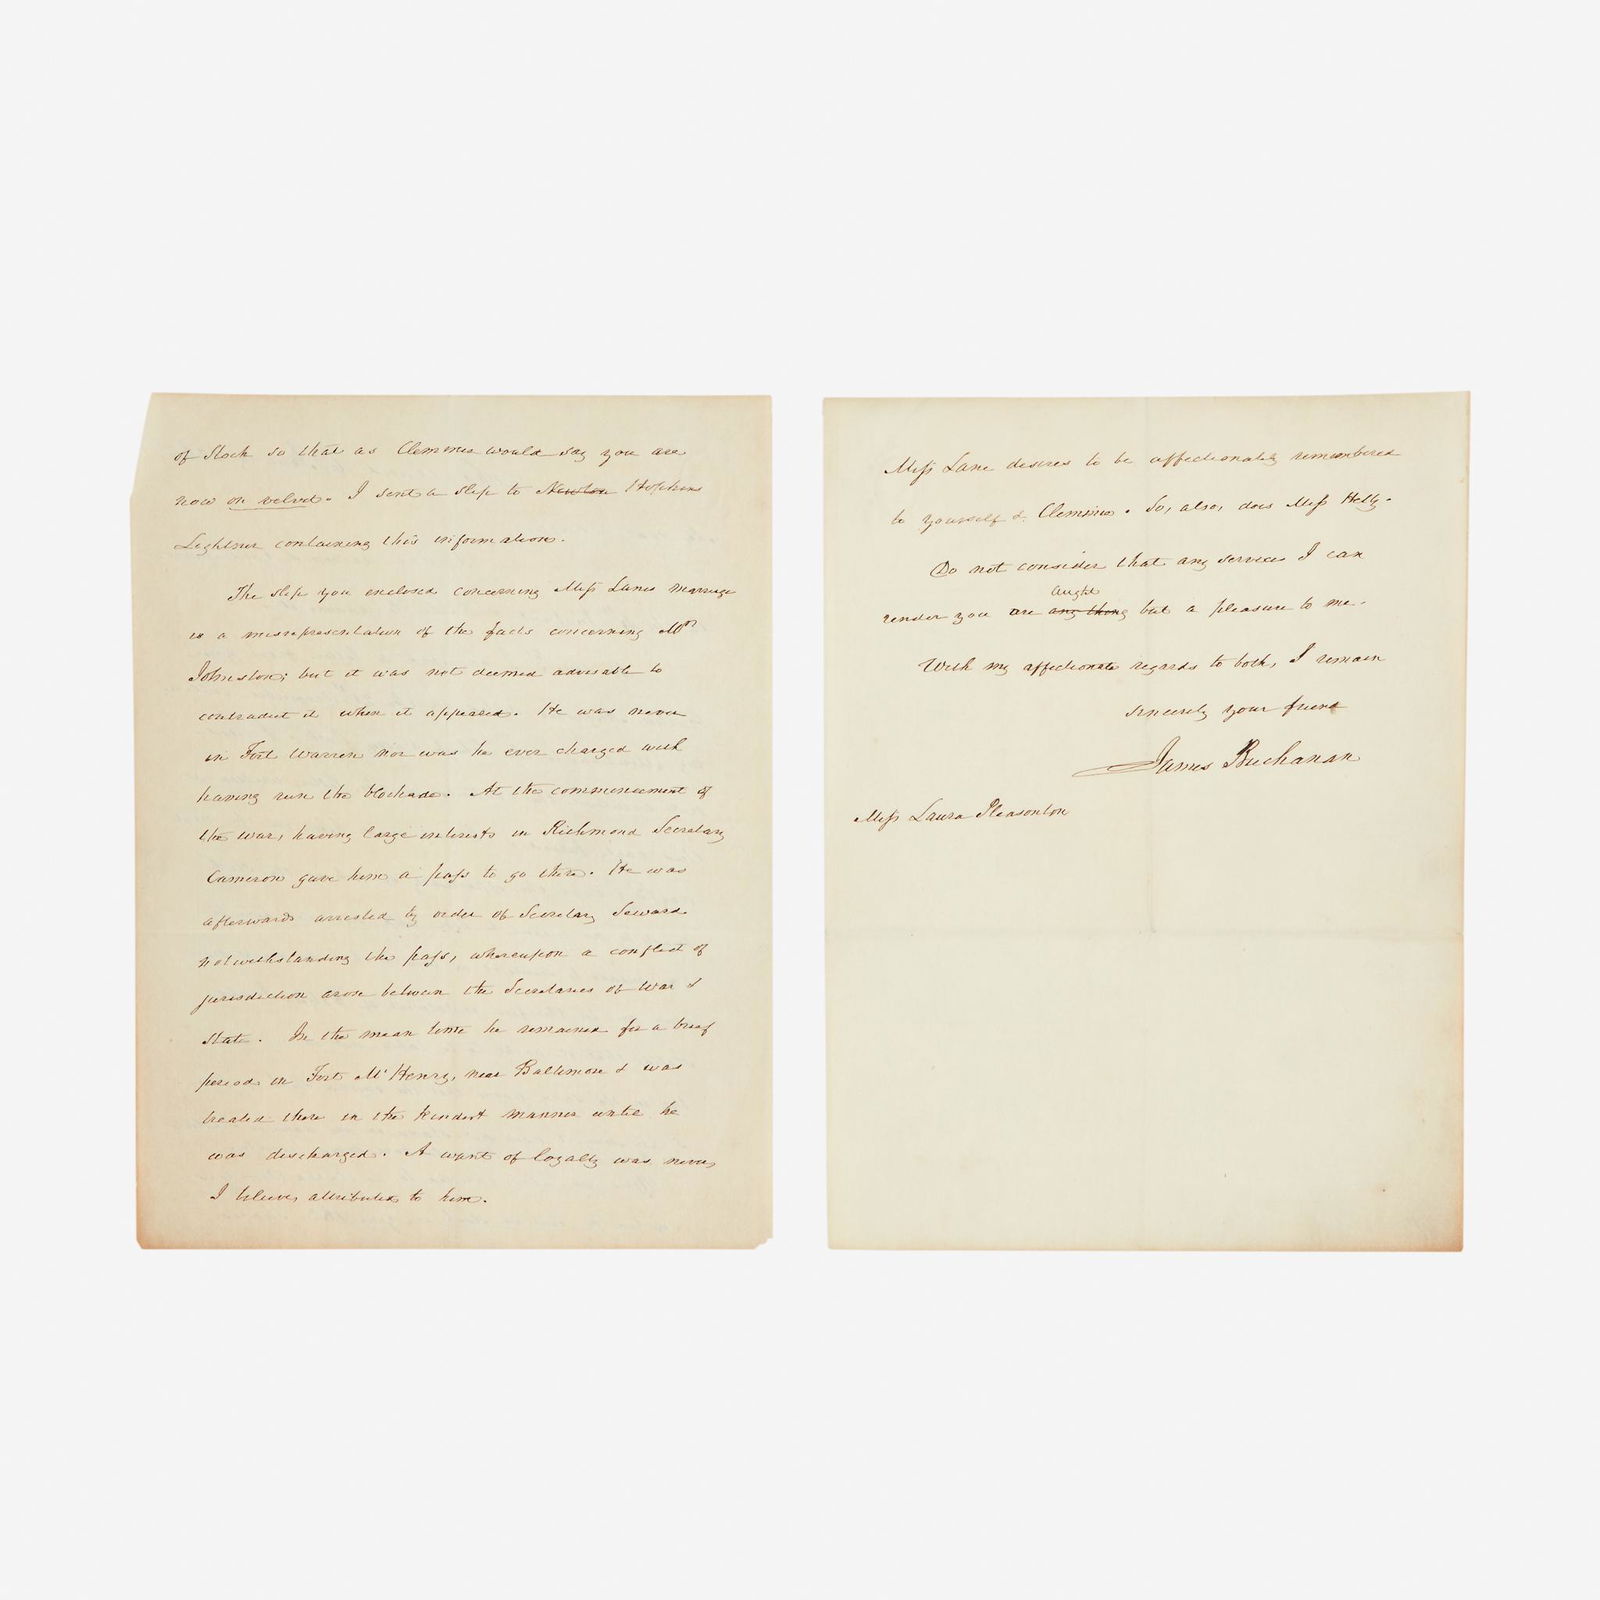 of Stock so that as Clemmie would say you are
now on velvet. I sent a slip to Newton Hopkins
Lightner containing this information.
The slip you enclosed concerning Miss Lanes marriage
is a misrepresentation of the facts concerning Mr
Johnston; but it was not deemed advisable to
contradict it when it appeared. He was never
in Fort Warren nor was he ever charged with
having run the blockade. At the commencement of
the war, having large interests in Richmond Secretary
Cameron gave him a pass to go there. He was
afterwards arrested by order of Secretary Seward
notwithstanding the pass, whereupon a conflict of
jurisdiction arose between the Secretaries of War &
State. In the mean time he remained for a brief
period in Fort McHenry, near Baltimore & was
treated there in the kindest manner until he
was discharged. A want of loyalty was never,
I believe, attributed to him.
Miss Lane desires to be affectionately remembered
to yourself & Clemmie. So, also, does Miss Hetty.
Do not consider that any services I can
aught
render you are any thing but a pleasure to me.
With my affectionate regards to both, I remain
sincerely your friend
James Buchanan
Miss Laura Pleasonton